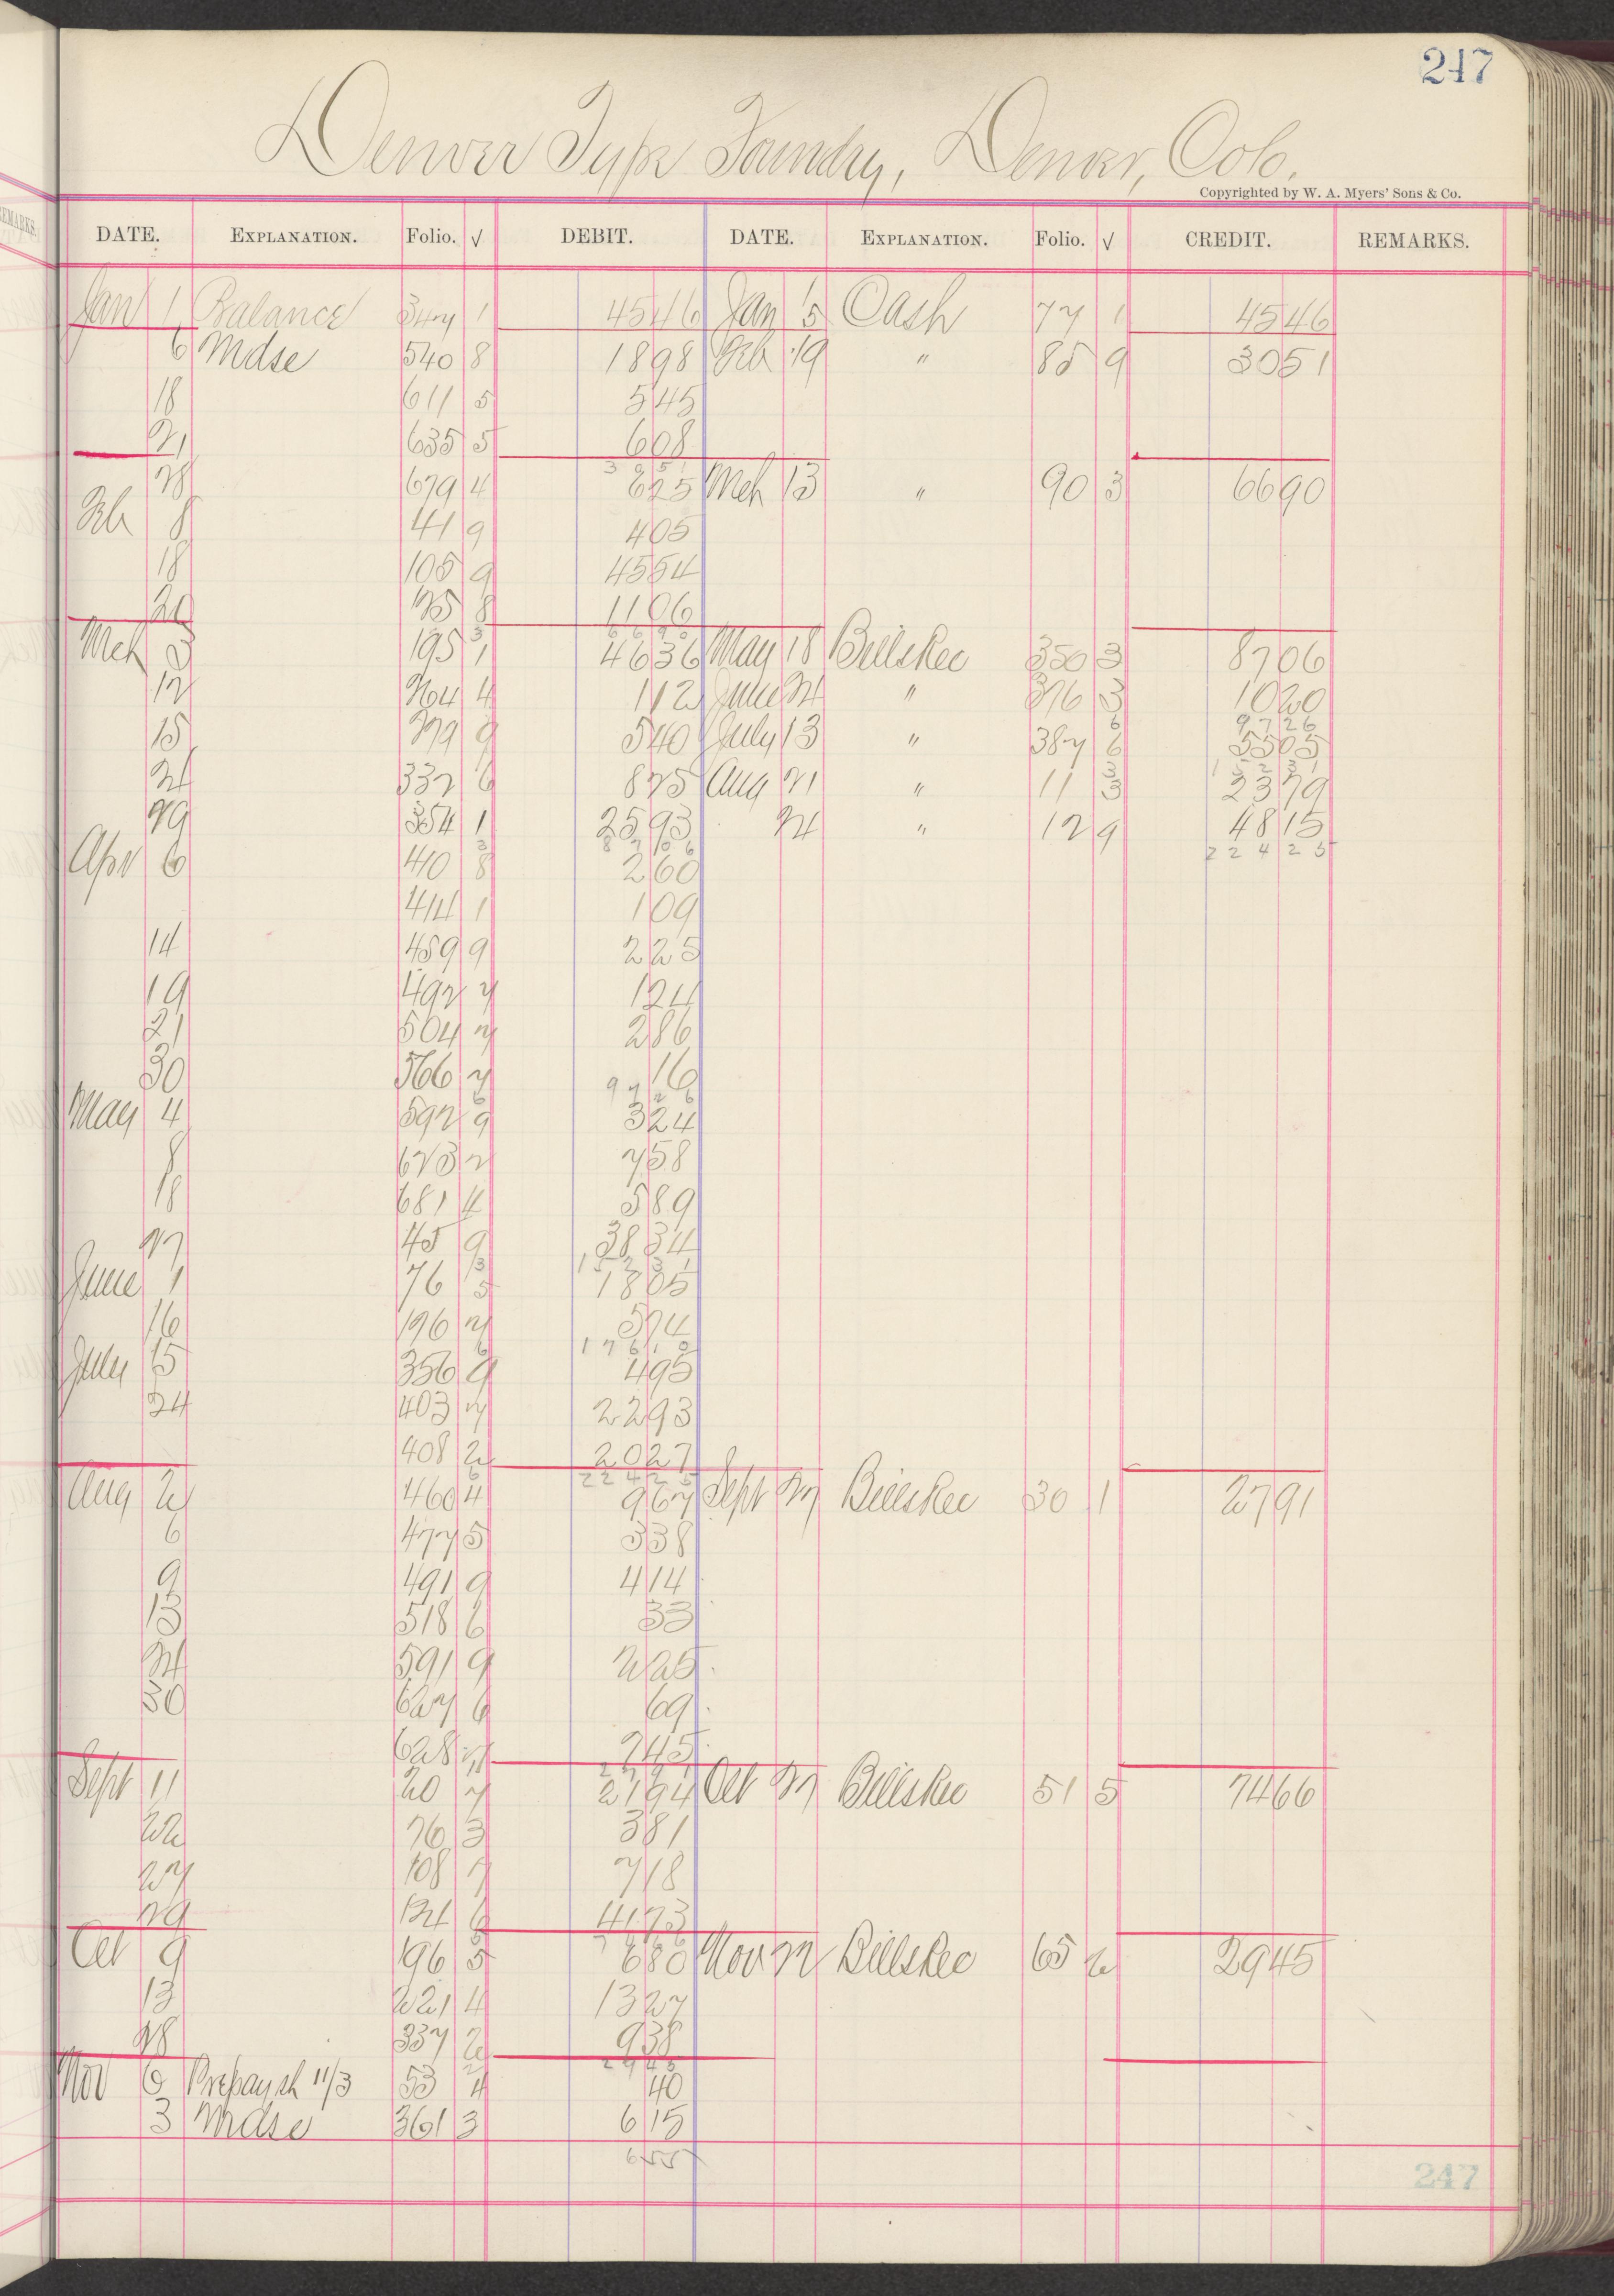 247
Denver Type Foundry, Denver, Colo.
Copyrighted by W. A. Myers' Sons & Co.
DATE. EXPLANATION. Folio. √ DEBIT. DATE. EXPLANATION. Folio. √ CREDIT. REMARKS.
Jan 1 Balance 347 1 4546 Jan 15 Cash 77 1 4546
6 Mdse 540 8 1898 Feb 19 " 85 9 3051
18 611 5 545
21 635 5 608
3051
28 679 4 625 Mch 13 " 90 3 6690
Feb 8 41 9 405
18 105 9 4554
26 125 8 1106
6690
Mch 3 195 1 4636 May 18 BillsRec 350 3 8706
12 264 4 112 June 24 " 376 3 1020
9726
15 279 9 540 July 13 " 387 6 5505
15231
24 332 6 825 Aug 21 " 11 3 2379
29 354 1 2593 24 " 12 9 4815
8706 22425
Apr 6 410 8 260
414 1 109
14 459 9 225
19 492 7 124
21 504 7 286
30 566 7 16
9726
May 4 592 9 324
8 623 2 758
18 681 4 589
27 45 9 3834
15231
June 1 76 5 1805
16 196 2 574
17610
July 15 356 9 495
24 403 7 2293
408 2 2027
22425
Aug 2 460 4 967 Sept 27 BillsRec 30 1 2791
6 477 5 338
9 491 9 414
13 518 6 33
24 591 9 225
30 627 6 69
628 7 745
2791
Sept 11 20 7 2194 Oct 27 BillsRec 51 5 7466
22 76 3 381
27 108 7 718
29 124 6 4173
7466
Oct 9 196 5 680 Nov 22 BillsRec 65 2 2945
13 221 4 1327
28 337 2 938
2945
Nov 6 Prepay ch 11/3 53 4 40
3 Mdse 361 3 615
655
247